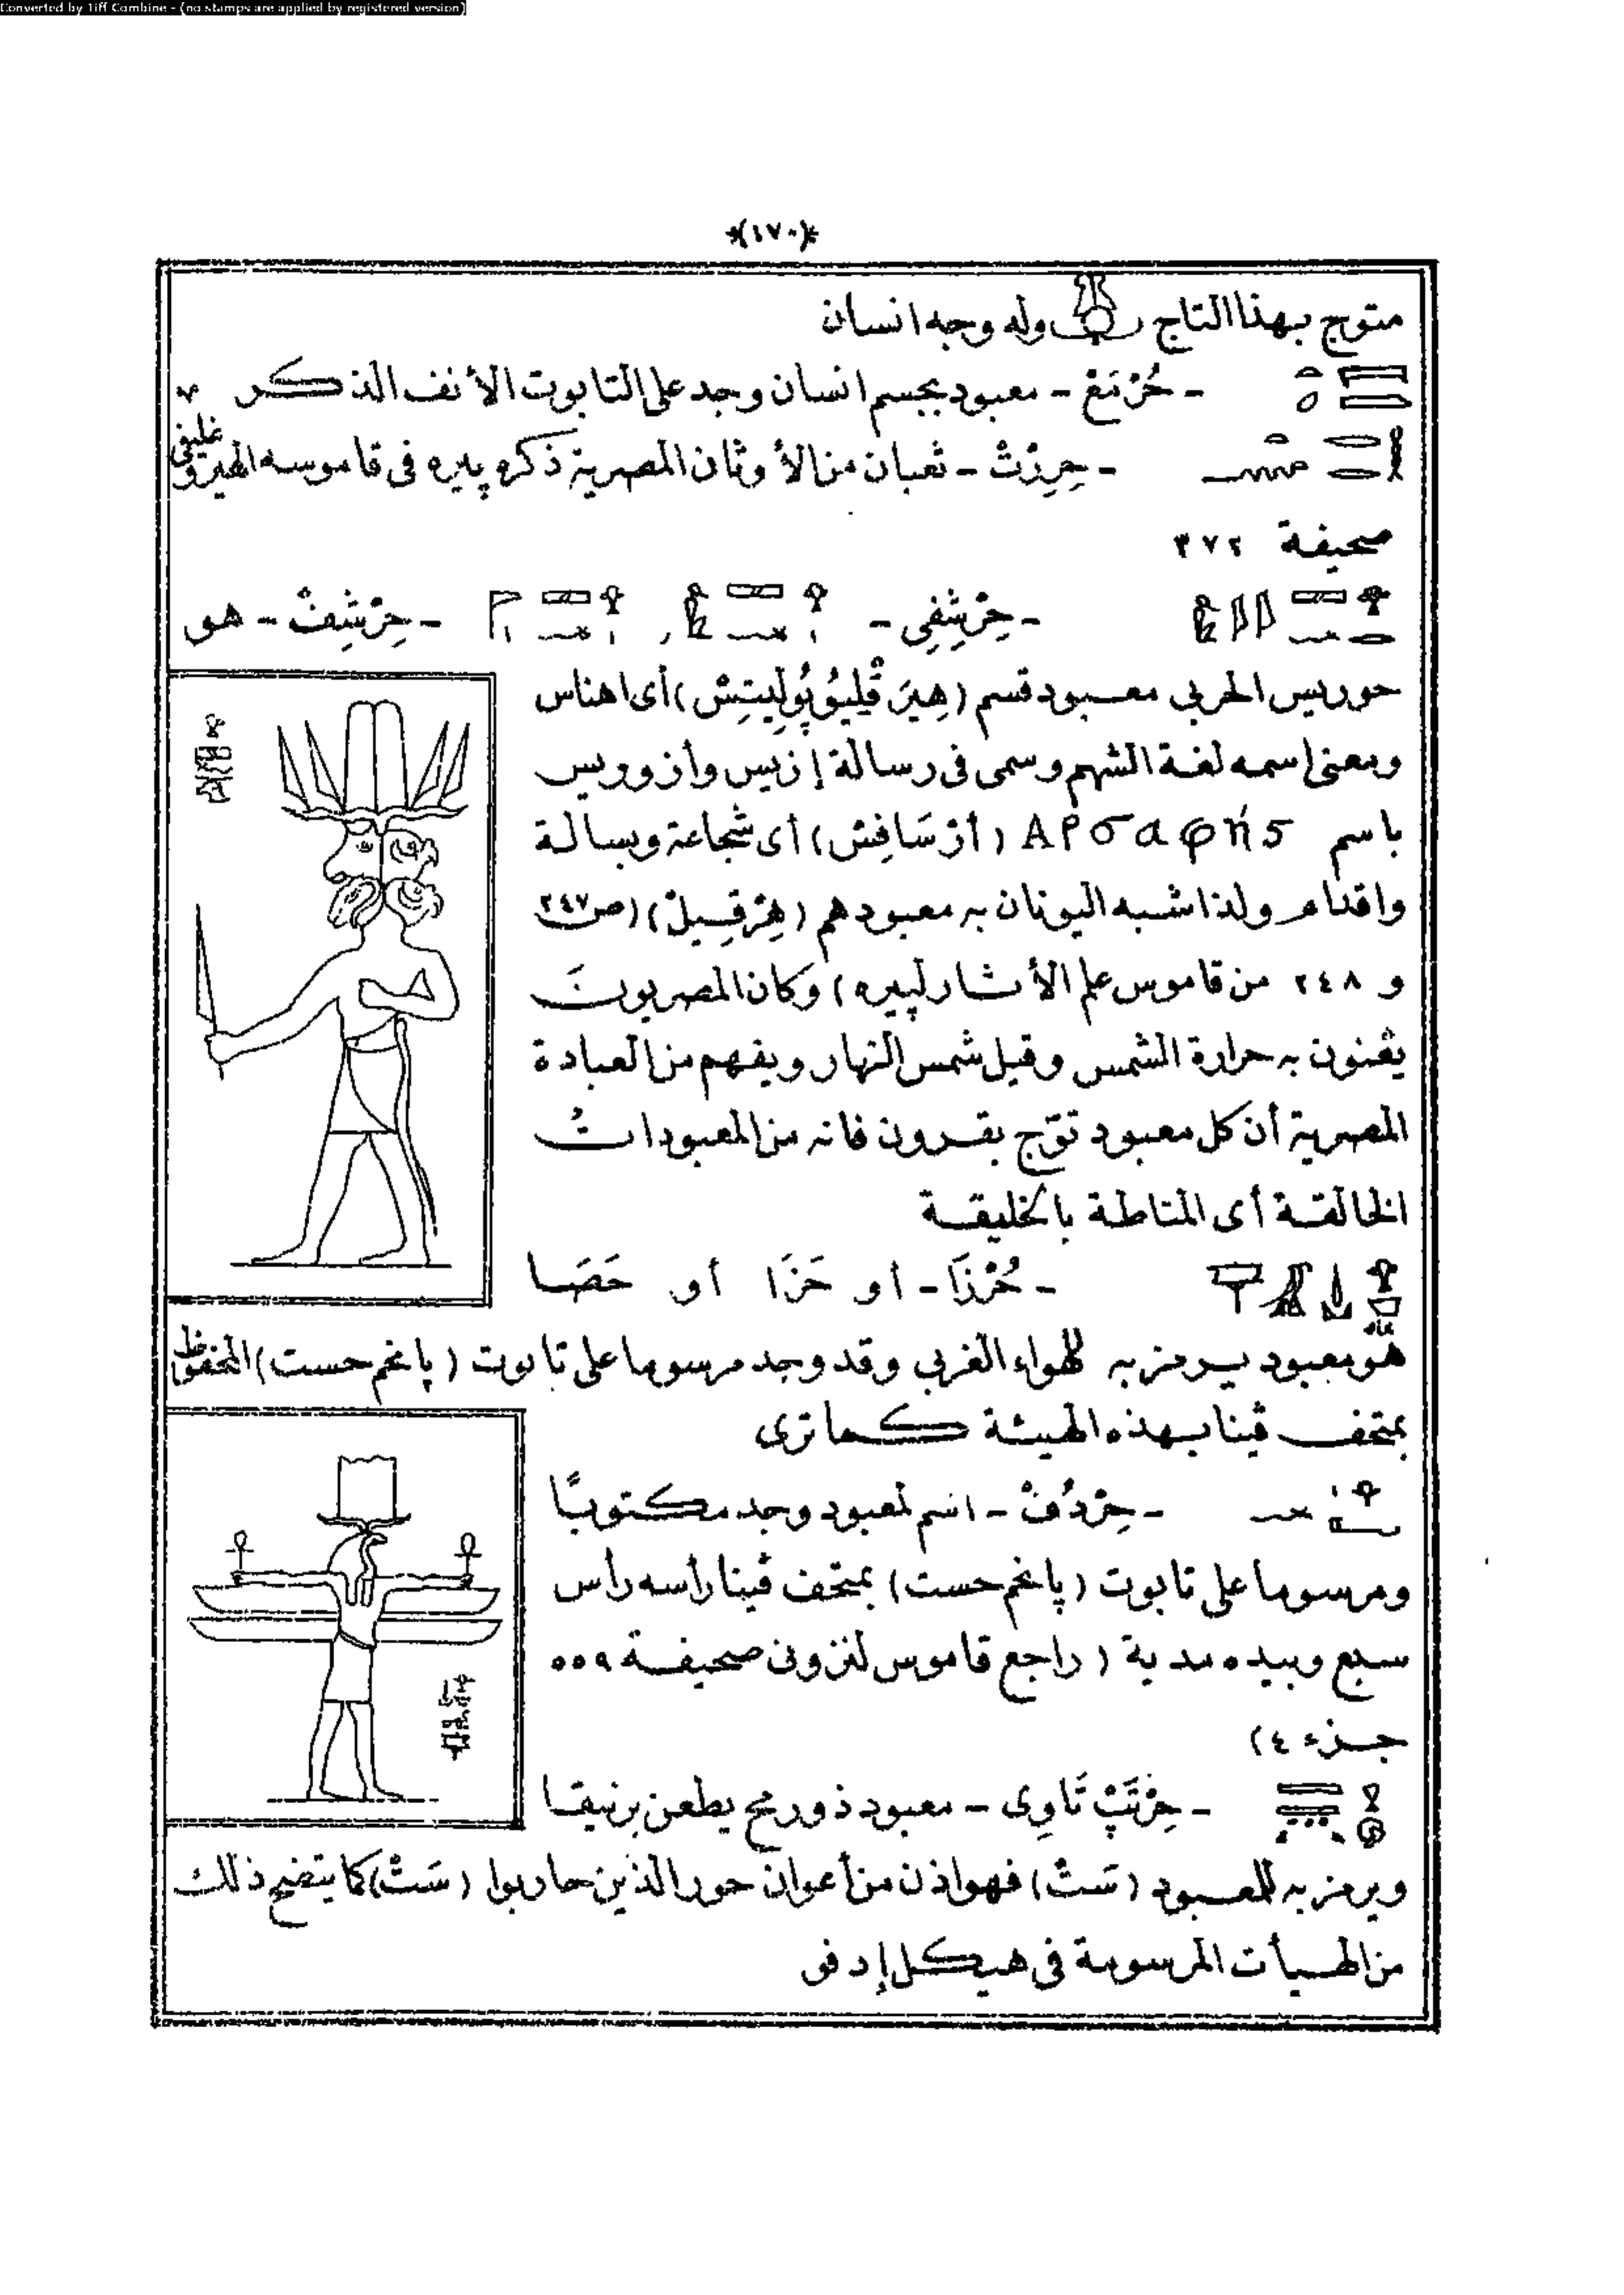 Converted by Tiff Combine - (no stamps are applied by registered version)
*(١٧٠)*
متوج بهذا التاج وله وجه انسان
- حُرْمَعْ - معبود بجسم انسان وجد على التابوت الأنف الذكر
- حِرِرْتْ - ثعبان من الأوثان المصرية ذكره پيره فى قاموسه الهيروغليفى
صحيفة ٣٧٢
- حِرْشِفِى - - حِرْشِفْ - هو
حوريس الحربى معبود قسم (هِيرَ قْلِيُو پُولِيتِسْ) أى اهناس
ومعنى اسمه لغة الشهم وسمى فى رسالة إزيس وأزوريس
باسم Αρσαφής (أرْسَافِسْ) أى شجاعة وبسالة
واقدام ولذا شبه اليونان به معبودهم (هِرْقِيلْ) (ص ٢٤٧
و ٢٤٨ من قاموس علم الأثار لپيره) وكان المصريون
يعنون به حرارة الشمس وقيل شمس النهار ويفهم من العبادة
المصرية أن كل معبود توّج بقرون فانه من المعبودات
الخالقة أى المناطة بالخليقة
- حُرْزَا - أو حَزَا أو حَصَا
هو معبود يرمز به للهواء الغربى وقد وجد مرسوما على تابوت (پانحم حست) المحفوظ
بمتحف ڤينا بهذه الهيئة كما ترى
- حِرْدُفْ - اسم لمعبود وجد مكتوبًا
ومرسوما على تابوت (پانحم حست) بمتحف ڤينا رأسه رأس
سبع وبيده مدية (راجع قاموس لنزونى صحيفة ٥٥٩
جزء ٤)
- حِرْتَپْ تَاوِى - معبود ذو رمح يطعن برنيقا
ويرمز به للمعبود (سَتْ) فهو اذن من أعوان حور الذين حاربوا (سَتْ) كما يتضح ذلك
من الهيأت المرسومة فى هيكل إدفو